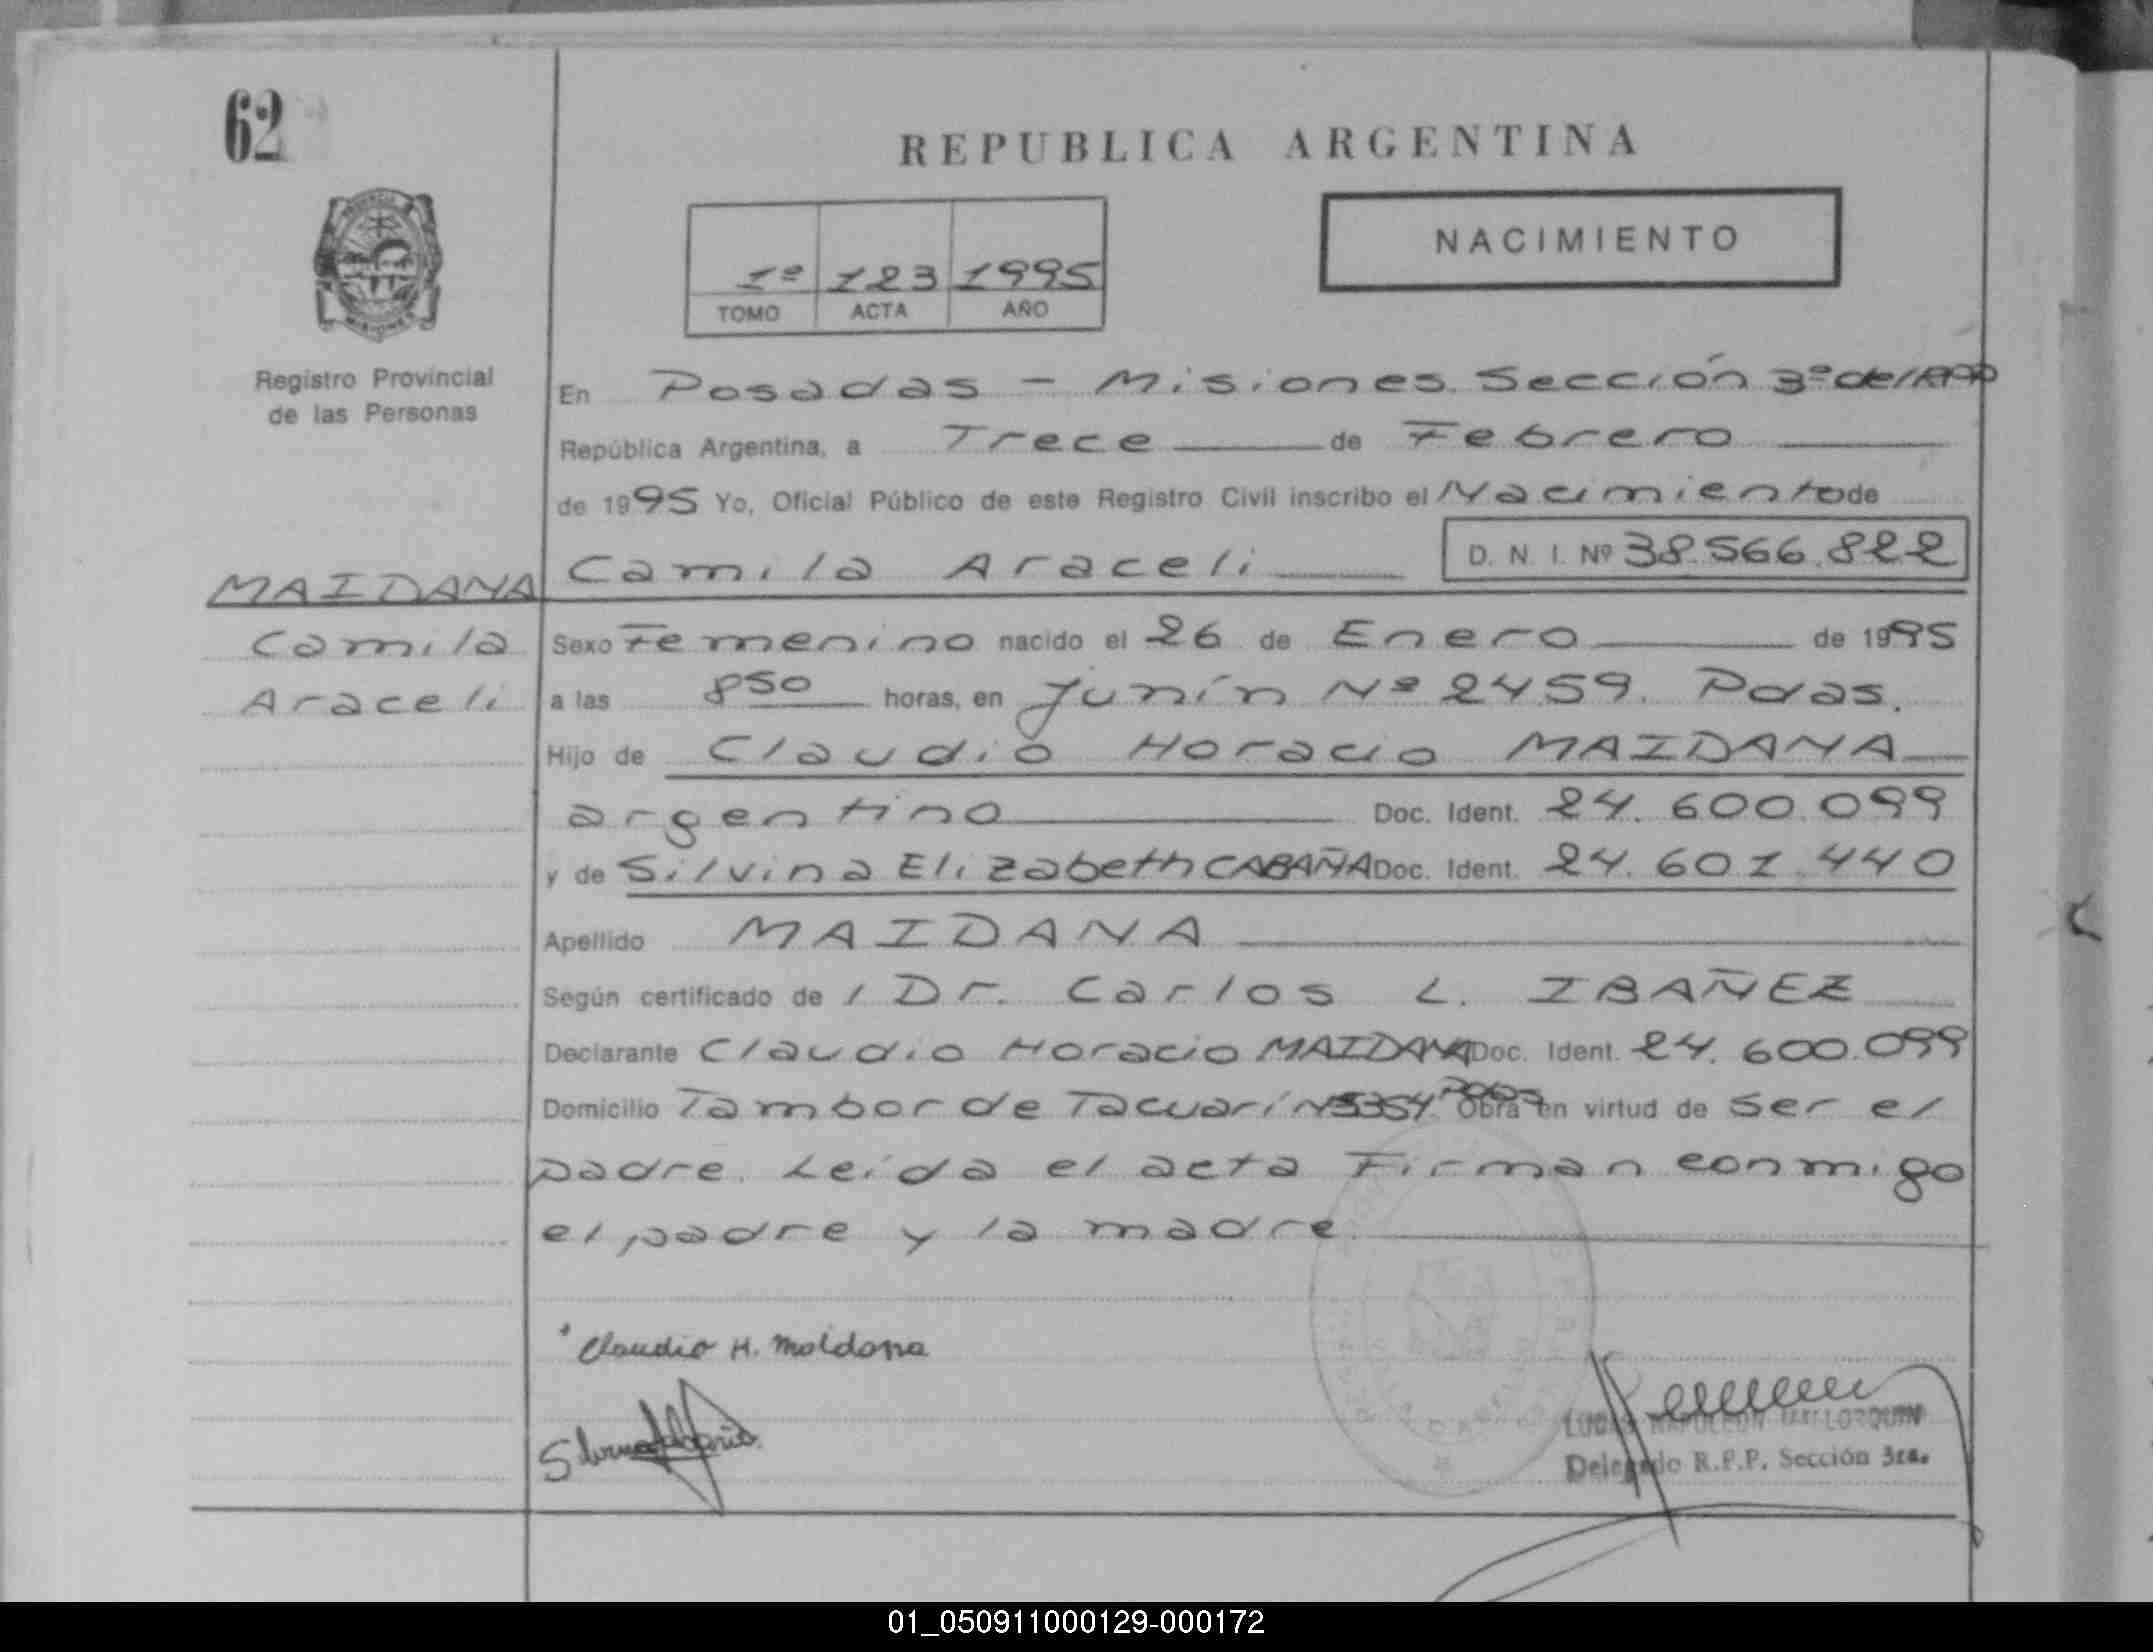 62
REPUBLICA ARGENTINA
NACIMIENTO
1º 123 1995
TOMO ACTA AÑO
Registro Provincial
de las Personas
En Posadas - Misiones. Sección 3º del RPP
República Argentina, a Trece de Febrero
de 1995 Yo, Oficial Público de este Registro Civil inscribo el Nacimiento de
Camila Araceli D. N. I. Nº 38.566.822
MAIDANA
Camila
Araceli
Sexo Femenino nacido el 26 de Enero de 1995
a las 8 50 horas, en Junín Nº 2459. Pdas.
Hijo de Claudio Horacio MAIDANA
argentino Doc. Ident. 24.600.099
y de Silvina Elizabeth CABAÑA Doc. Ident. 24.601.440
Apellido MAIDANA
Según certificado de / Dr. Carlos L. IBAÑEZ
Declarante Claudio Horacio MAIDANA Doc. Ident. 24.600.099
Domicilio Tambor de Tacuarí Obra en virtud de ser el
padre. Leída el acta Firman conmigo
el padre y la madre
Claudio H. Maidana
LUCAS NAPOLEON MALLORQUIN
Delegado R.P.P. Sección 3ra.
01_050911000129-000172